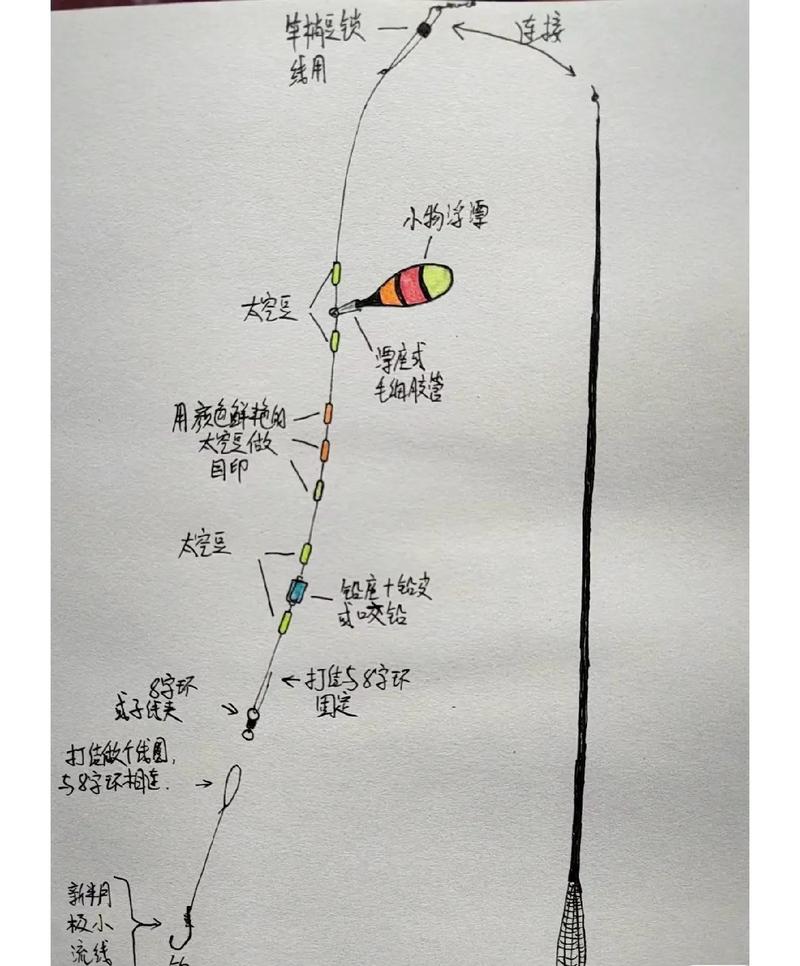 竿梢豆锁
线用
连接
小物浮漂
太空豆
漂座或
毛细胶管
用颜色鲜艳的
太空豆做
目印
太空豆
铅座+铅皮
或咬铅
打结与8字环
固定
8字环
或子线夹
打结做个线圈,
与8字环相连.
新半月
极小
流线